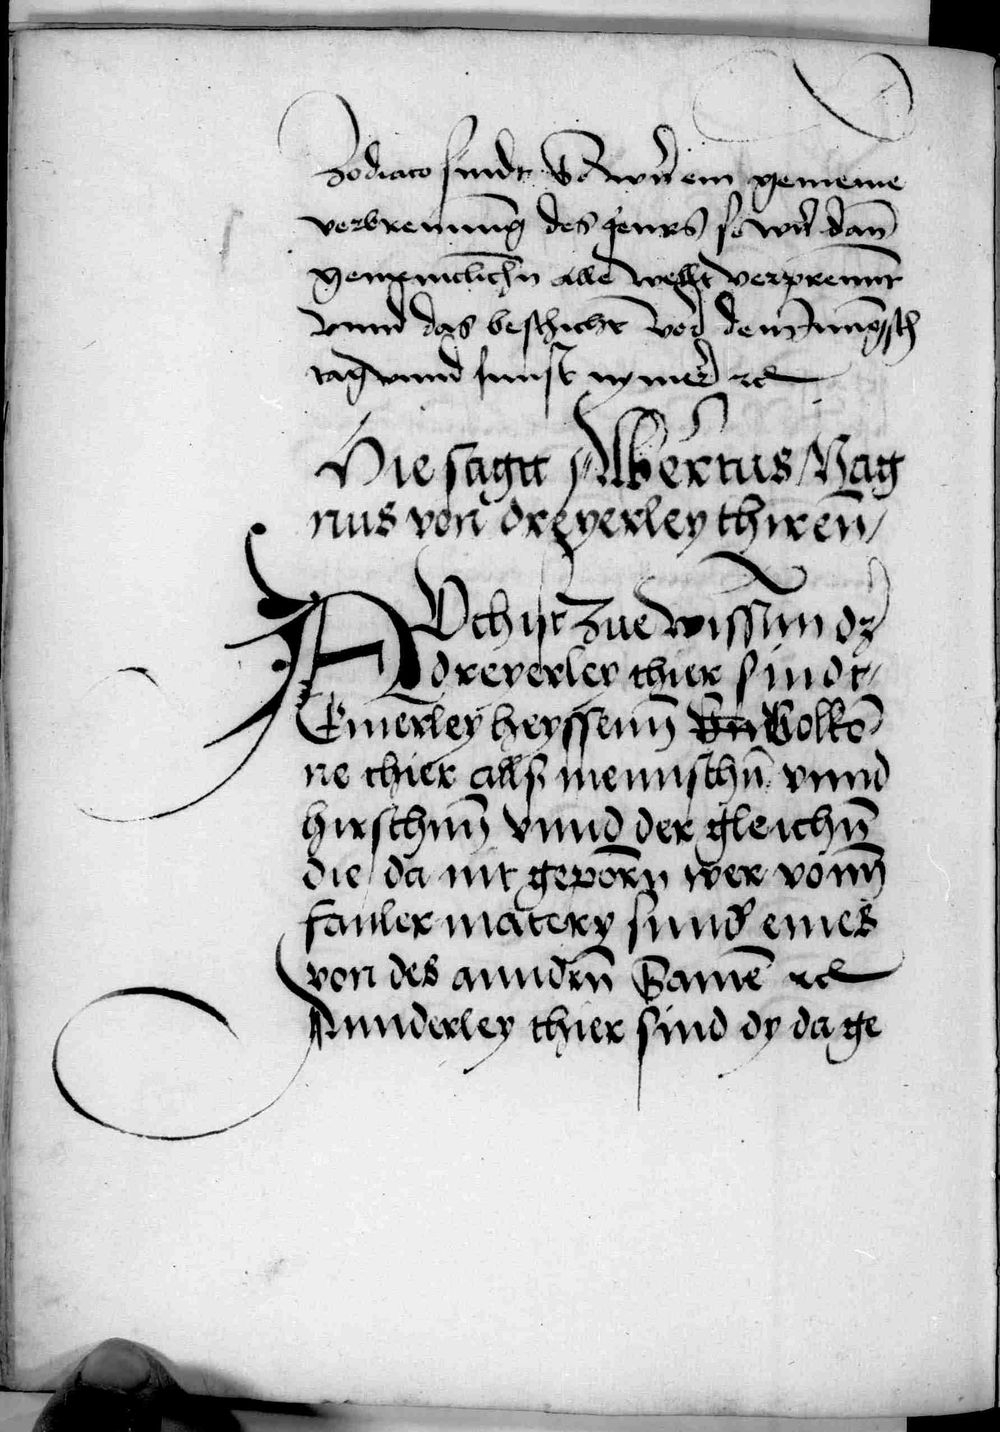 Zodiaco sindt So wirt ein gemeine
verbrennung des feurs so wirt dan̄
gemeinclich̄n alle wellt verprennt
vnnd das beschicht vor dem Jungsth
tag vnnd sunst nymer ꝛc
Hie sagtt Albertus Mag
nus von dreyerley thiren̄
AUch ist zue wissenn dz
dreyerley thier sindt
Einerley heyssenn̄ Vn Volko̅
ne thier alls mennschn̄ vnnd
hirschnn̄ vnnd der gleichn̄
die da nit geporn̄ wer vonn̄
fauler matery sunnd̾ eines
von des anndrn̄ Samē ꝛc
Annderley thier sind dy da ge